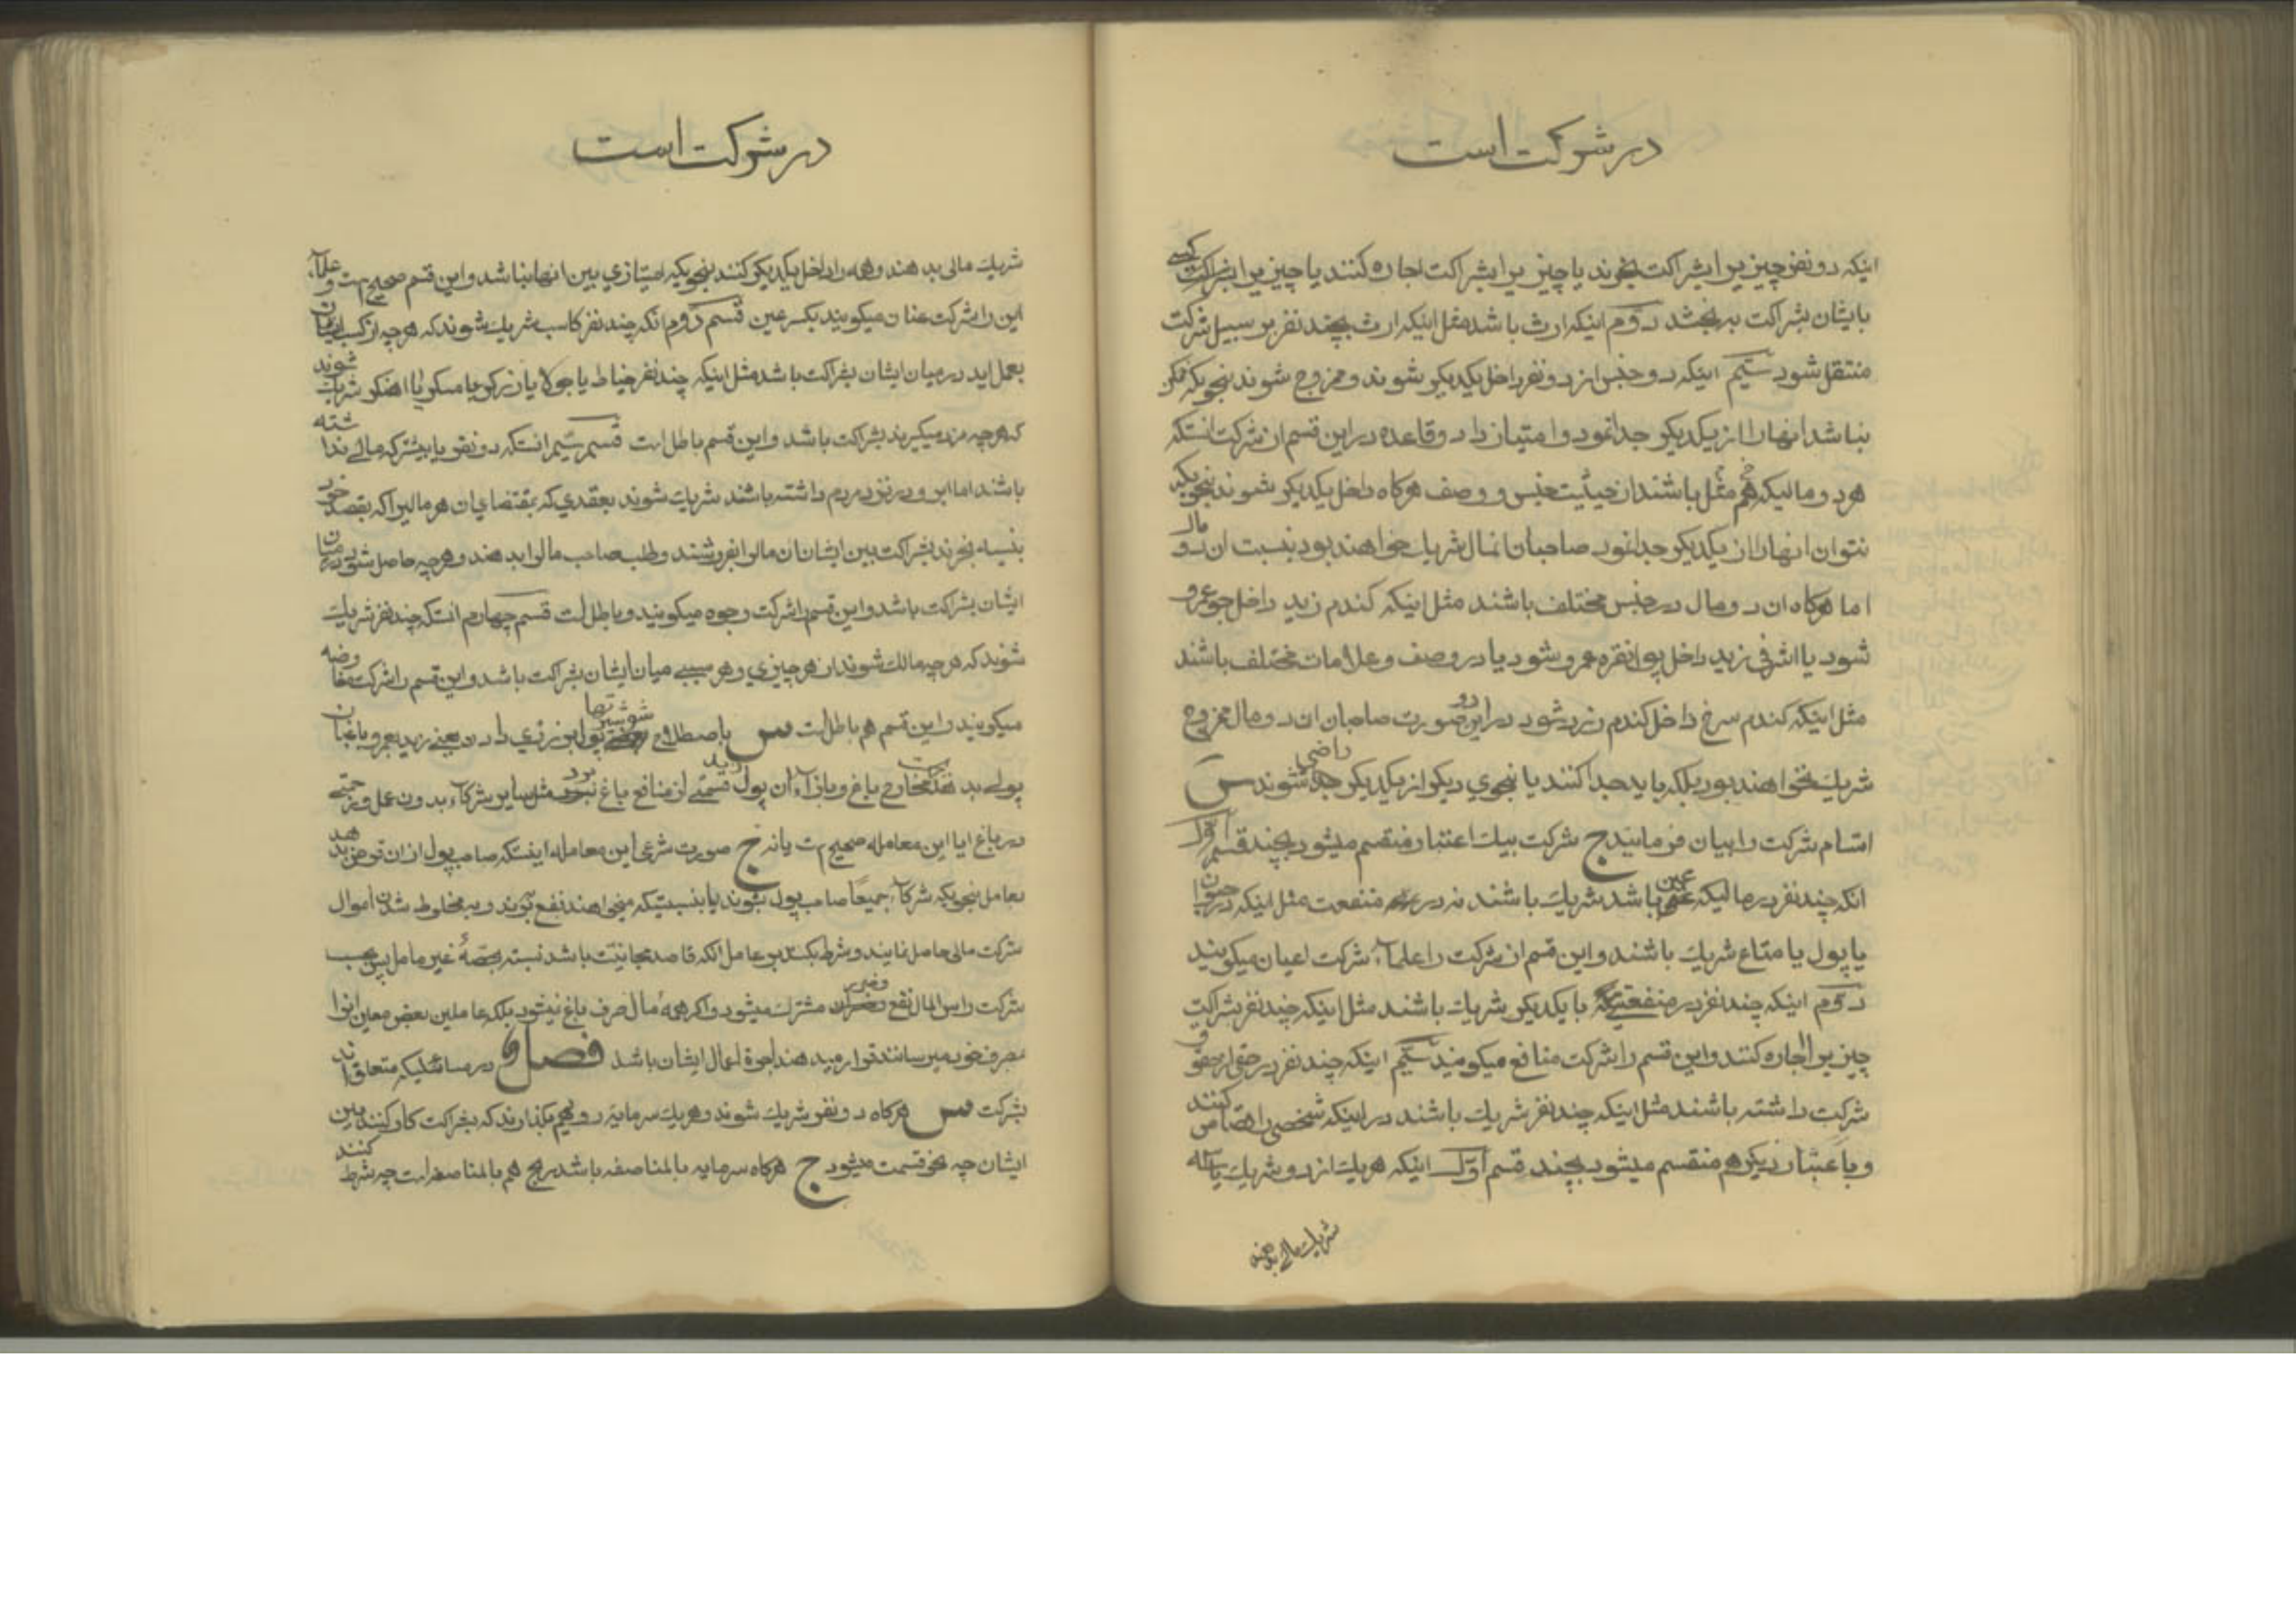 در شرکت است
اینکه دو نفر چیزیرا بشراکت بخرند یا چیزیرا بشراکت اجاره کنند یا چیزیرا بشراکت کسی
بایشان بشراکت به بخشد دوم اینکه ارث باشد مثل اینکه ارث بچند نفر بر سبیل شرکت
منتقل شود سیم اینکه دو جنس از دو نفر داخل یکدیکر شوند و ممزوج شوند بنحویکه ممکن
نباشد انهارا از یکدیکر جدا نمود و امتیاز داد و قاعده در این قسم از شرکت انستکه
هر دو مالیکه هم مثل باشند از حیثیت جنس و وصف هرکاه داخل یکدیکر شوند بنحویکه
نتوان انهارا از یکدیکر جدا نمود صاحبان انمال شریک خواهند بود بنسبت ان دو مال
اما هرکاه ان دو مال در جنس مختلف باشند مثل اینکه کندم زید داخل جو عمرو
شود یا اشرفی زید داخل پول نقره عمرو شود یا در وصف و علامات مختلف باشند
مثل اینکه کندم سرخ داخل کندم زرد شود در این دو صورت صاحبان ان دو مال ممزوج
شریک نخواهند بود بلکه باید جدا کنند یا بنحوی دیکر از یکدیکر راضی شوند س
اقسام شرکت را بیان فرمائید ج شرکت بیک اعتبار منقسم میشود بچند قسم اول
انکه چند نفر در مالیکه عین باشد شریک باشند نه در منفعت مثل اینکه در حیوان
یا پول یا متاع شریک باشند و این قسم از شرکت را علمآء شرکت اعیان میکویند
دوم اینکه چند نفر در منفعتی با یکدیکر شریک باشند مثل اینکه چند نفر بشراکت
چیزیرا اجاره کنند و این قسم را شرکت منافع میکویند سیم اینکه چند نفر در حقی از حقوق
شرکت داشته باشند مثل اینکه چند نفر شریک باشند در اینکه شخصی را قصاص کنند
و باعتبار دیکر هم منقسم میشود بچند قسم اول اینکه هر یک از دو شریک یا سه
شریک مالی بدهند
در شرکت است
شریک مالی بدهند و همه را داخل یکدیکر کنند بنحویکه امتیازی بین انها نباشد و این قسم صحیح است و علمآء
این را شرکت عنان میکویند بکسر عین قسم دوم انکه چند نفر کاسب شریک شوند که هر چه از کسب ایشان
بعمل اید در میان ایشان بشراکت باشد مثل اینکه چند نفر خیاط یا جولا یا زرکر یا مسکر یا اهنکر شریک شوند
که هرچه مزد میکیرند بشراکت باشد و این قسم باطل است قسم سیم انستکه دو نفر یا بیشتر که مالی نداشته
باشند اما ابرو در نزد مردم داشته باشند شریک شوند بعقدی که بمقتضای ان هر مالیرا که بقصد خود
بنسیه بخرند بشراکت بین ایشان ان مالرا بفروشند و طلب صاحب مالرا بدهند و هرچه حاصل شود در میان
ایشان بشراکت باشد و این قسم را شرکت وجوه میکویند و باطل است قسم چهارم انستکه چند نفر شریک
شوند که هرچه مالک شوند از هر چیزی و هر سببی میان ایشان بشراکت باشد و این قسم را شرکت مفاوضه
میکویند و این قسم هم باطل است س باصطلاح شوشتریها پول برزکری دادن یعنی زید بعمرو باغبان
پولی بدهد بجهت مخارج باغ و بازآء ان پول قسمتی از منافع باغ زید برد مثل سایر شرکآء بدون عمل و زحمتی
در باغ ایا این معامله صحیح است یا نه ج صورت شرعی این معامله اینستکه صاحب پول از ان قرض بدهد
بعامل بنحویکه شرکآء جمیعا صاحب پول شوند یا بنسبتیکه میخواهند نفع برند و به مخلوط شدن اموال
شرکت مالی حاصل نمایند و شرط بکند بر عامل انکه قاصد مجانیت باشد نسبت بحصه غیر عامل پس بحسب
شرکت راس المال نفع و ضرر مشترک میشود و اکر همه مال صرف باغ نمیشود بلکه عاملین بعض معین انرا
بمصرف خود میرسانند قرار میدهند اجرة اعمال ایشان باشد فصل در مسائلیکه متعلق اند
بشرکت س هرکاه دو نفر شریک شوند و هر یک سرمایه روی هم بکذارند که بشراکت کار کنند بین
ایشان چه نحو قسمت میشود ج هرکاه سرمایه بالمناصفه باشد ربح هم بالمناصفه است چه شرط کنند